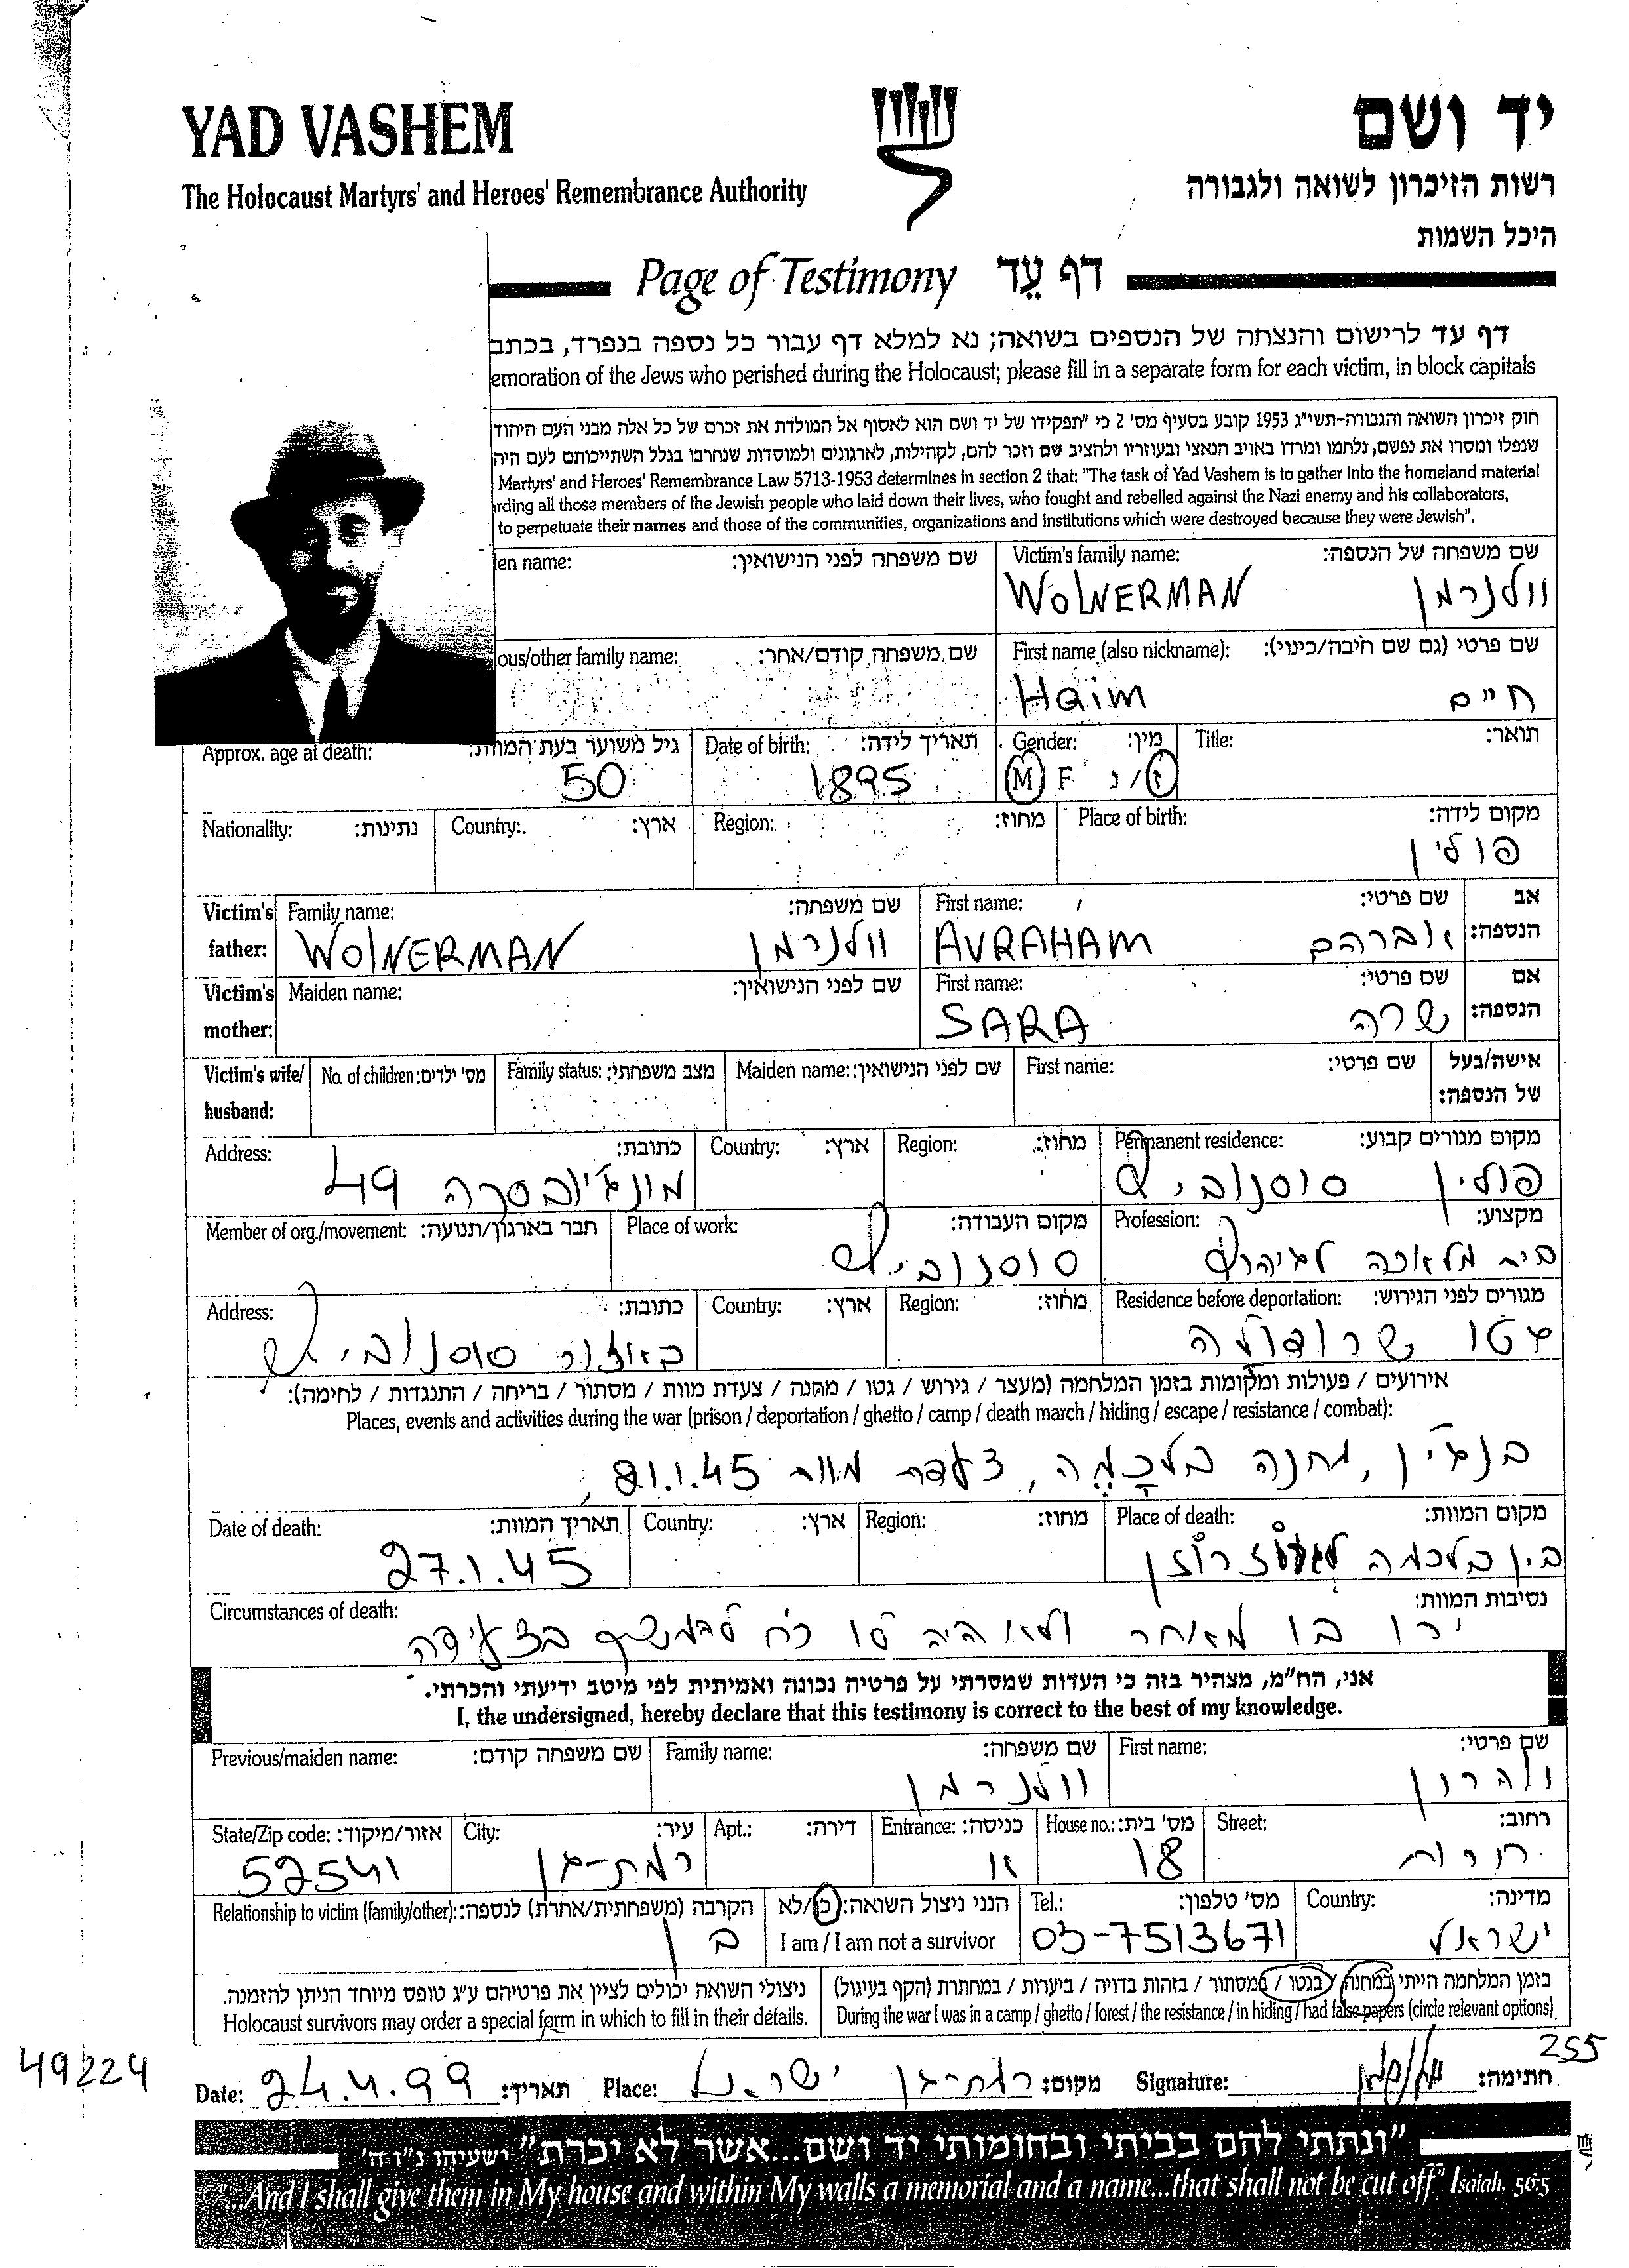 YAD VASHEM
יד ושם
The Holocaust Martyrs' and Heroes' Remembrance Authority
רשות הזיכרון לשואה ולגבורה
היכל השמות
Page of Testimony דף עֵד
דף עד לרישום והנצחה של הנספים בשואה; נא למלא דף עבור כל נספה בנפרד, בכתב
emoration of the Jews who perished during the Holocaust; please fill in a separate form for each victim, in block capitals
חוק זיכרון השואה והגבורה-תשי"ג 1953 קובע בסעיף מס' 2 כי "תפקידו של יד ושם הוא לאסוף אל המולדת את זכרם של כל אלה מבני העם היהוד
שנפלו ומסרו את נפשם, נלחמו ומרדו באויב הנאצי ובעוזריו ולהציב שם וזכר להם, לקהילות, לארגונים ולמוסדות שנחרבו בגלל השתייכותם לעם היה
Martyrs' and Heroes' Remembrance Law 5713-1953 determines in section 2 that: "The task of Yad Vashem is to gather into the homeland material
rding all those members of the Jewish people who laid down their lives, who fought and rebelled against the Nazi enemy and his collaborators,
to perpetuate their names and those of the communities, organizations and institutions which were destroyed because they were Jewish".
en name: שם משפחה לפני הנישואין: Victim's family name: שם משפחה של הנספה:
WOLNERMAN וולנרמן
ous/other family name: שם משפחה קודם/אחר: First name (also nickname): שם פרטי (גם שם חיבה/כינוי):
Haim חיים
Approx. age at death: גיל משוער בעת המוות: Date of birth: תאריך לידה: Gender: מין: Title: תואר:
50 1895 M F ז/נ
Nationality: נתינות: Country: ארץ: Region: מחוז: Place of birth: מקום לידה:
פולין
Victim's father: Family name: שם משפחה: First name: שם פרטי: אב הנספה:
WOLNERMAN וולנרמן AVRAHAM אברהם
Victim's mother: Maiden name: שם לפני הנישואין: First name: שם פרטי: אם הנספה:
SARA שרה
Victim's wife/ husband: No. of children: מס' ילדים: Family status: מצב משפחתי: Maiden name: שם לפני הנישואין: First name: שם פרטי: אישה/בעל של הנספה:
Address: כתובת: Country: ארץ: Region: מחוז: Permanent residence: מקום מגורים קבוע:
49 פולין סוסנוביץ
Member of org./movement: חבר בארגון/תנועה: Place of work: מקום העבודה: Profession: מקצוע:
סוסנוביץ בית מלאכה
Address: כתובת: Country: ארץ: Region: מחוז: Residence before deportation: מגורים לפני הגירוש:
באזור סוסנוביץ גטו שרודולה
אירועים / פעולות ומקומות בזמן המלחמה (מעצר / גירוש / גטו / מחנה / צעדת מוות / מסתור / בריחה / התנגדות / לחימה):
Places, events and activities during the war (prison / deportation / ghetto / camp / death march / hiding / escape / resistance / combat):
בנג'ין, מחנה בלכמה, צעדת מוות 21.1.45,
Date of death: תאריך המוות: Country: ארץ: Region: מחוז: Place of death: מקום המוות:
27.1.45 בין בלכמה לגרוס רוזן
Circumstances of death: נסיבות המוות:
ירו בו מאחר ולא היה לו כח להמשיך בצעידה
אני, הח"מ, מצהיר בזה כי העדות שמסרתי על פרטיה נכונה ואמיתית לפי מיטב ידיעתי והכרתי.
I, the undersigned, hereby declare that this testimony is correct to the best of my knowledge.
Previous/maiden name: שם משפחה קודם: Family name: שם משפחה: First name: שם פרטי:
וולנרמן אהרון
State/Zip code: אזור/מיקוד: City: עיר: Apt.: דירה: Entrance: כניסה: House no.: מס' בית: Street: רחוב:
52541 רמת-גן א 18 חרות
Relationship to victim (family/other): הקרבה (משפחתית/אחרת) לנספה: הנני ניצול השואה: כן/לא Tel.: מס' טלפון: Country: מדינה:
בן I am / I am not a survivor 03-7513671 ישראל
ניצולי השואה יכולים לציין את פרטיהם ע"ג טופס מיוחד הניתן להזמנה. בזמן המלחמה הייתי במחנה / בגטו / במסתור / בזהות בדויה / ביערות / במחתרת (הקף בעיגול)
Holocaust survivors may order a special form in which to fill in their details. During the war I was in a camp / ghetto / forest / the resistance / in hiding / had false papers (circle relevant options)
49224
255
Date: 24.4.99 תאריך: Place: רמת-גן ישראל מקום: Signature: חתימה:
"ונתתי להם בביתי ובחומותי יד ושם...אשר לא יכרת" ישעיהו נ"ו ה'
"...And I shall give them in My house and within My walls a memorial and a name...that shall not be cut off" Isaiah, 56:5